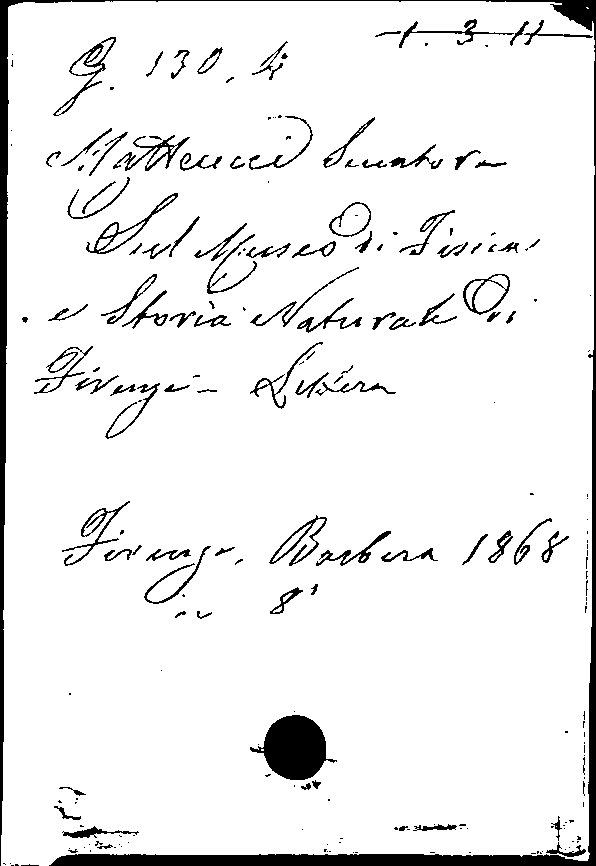 1. 3. 11
G. 130.
Matteucci Senatore
Sul Museo di Fisica
e Storia Naturale di
Firenze - Lettera
Firenze, Barbera 1868
in 8°